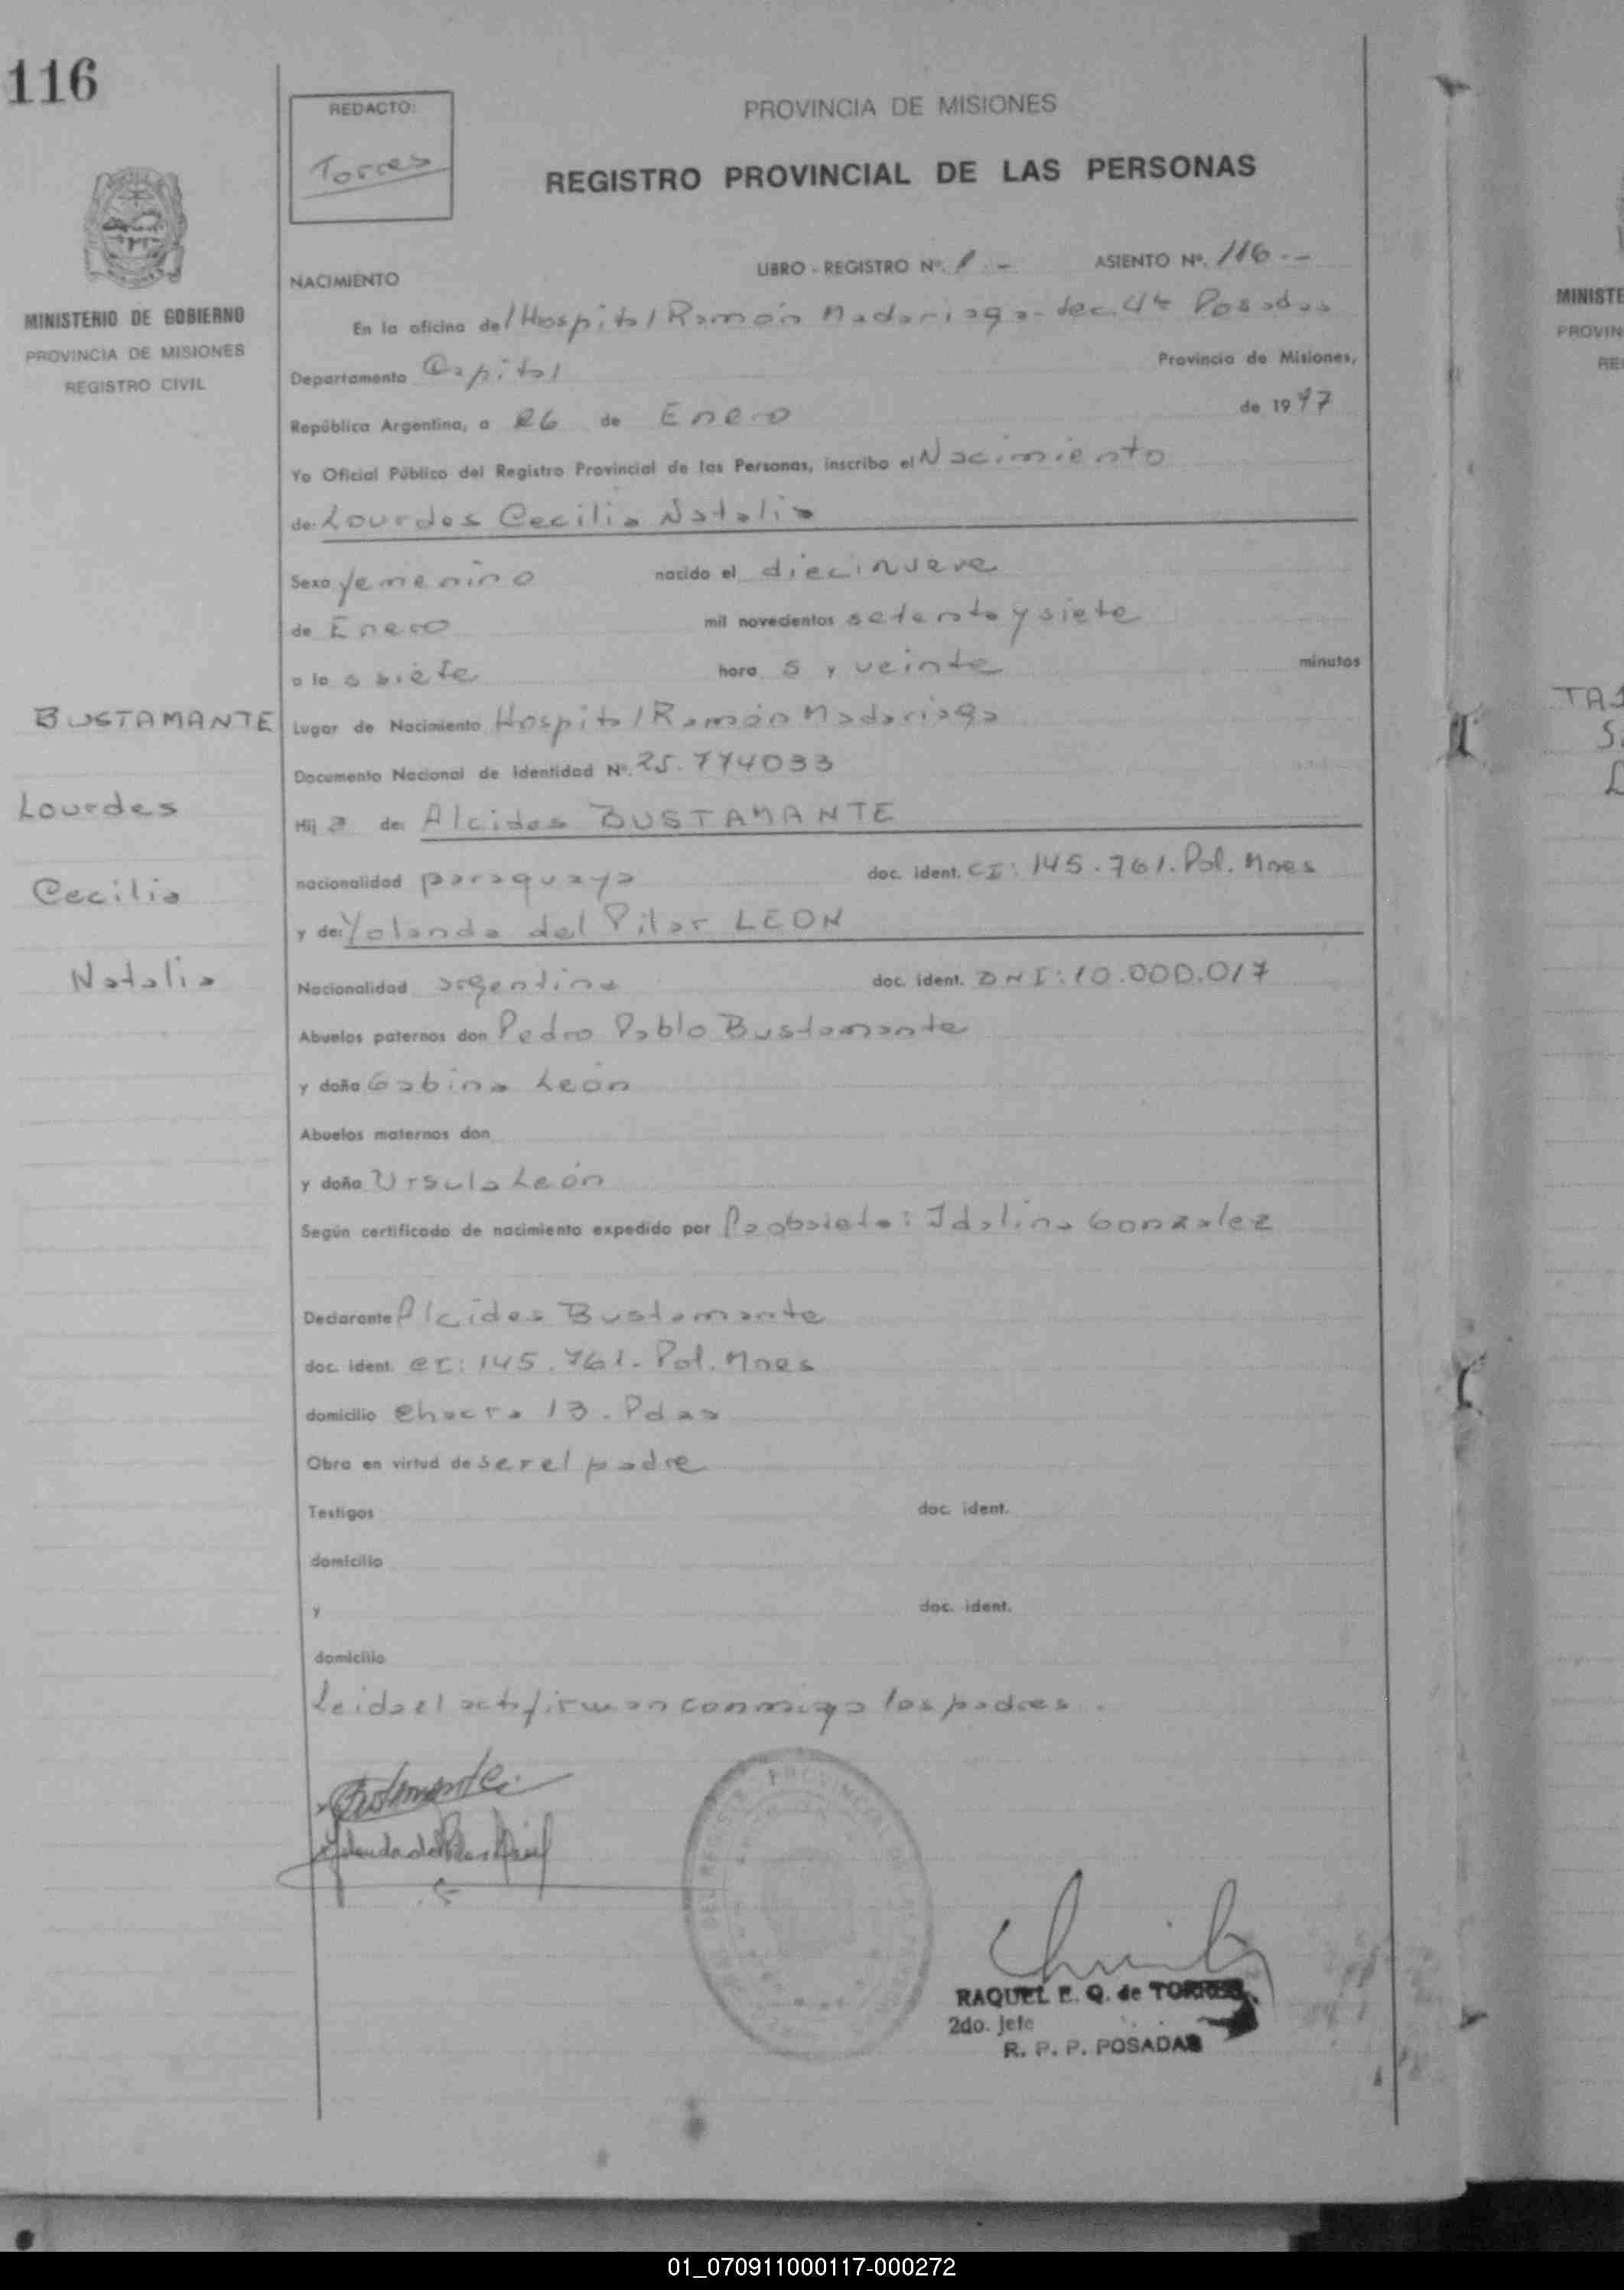 116
REDACTO:
Torres
PROVINCIA DE MISIONES
REGISTRO PROVINCIAL DE LAS PERSONAS
MINISTERIO DE GOBIERNO
PROVINCIA DE MISIONES
REGISTRO CIVIL
NACIMIENTO
LIBRO - REGISTRO Nº. 1.- ASIENTO Nº. 116.-
En la oficina del Hospital Ramón Madariaga - Sec. 4ta Posadas
Departamento Capital Provincia de Misiones,
República Argentina, a 26 de Enero de 1977
Yo Oficial Público del Registro Provincial de las Personas, inscribo el Nacimiento
de: Lourdes Cecilia Natalia
Sexo femenino nacido el diecinueve
de Enero mil novecientos setenta y siete
a las siete hora s y veinte minutos
Lugar de Nacimiento Hospital Ramón Madariaga
Documento Nacional de Identidad Nº. 25.774033
Hij a de: Alcides BUSTAMANTE
nacionalidad paraguaya doc. ident. CI: 145.761. Pol. Mnes
y de: Yolanda del Pilar LEON
Nacionalidad argentina doc. ident. DNI: 10.000.017
Abuelos paternos don Pedro Pablo Bustamante
y doña Gabina León
Abuelos maternos don
y doña Ursula León
Según certificado de nacimiento expedido por Pa obsteta: Idalina Gonzalez
Declarante Alcides Bustamante
doc. ident. CI: 145.761. Pol. Mnes
domicilio Chacra 13. Pdas
Obra en virtud de ser el padre
Testigos doc. ident.
domicilio
y doc. ident.
domicilio
Leida el acta firman conmigo los padres.
BUSTAMANTE
Lourdes
Cecilia
Natalia
Bustamante
Yolanda del Pilar
RAQUEL E. Q. de TORRES
2do. Jefe
R. P. P. POSADAS
MINISTE
PROVIN
RE
01_070911000117-000272